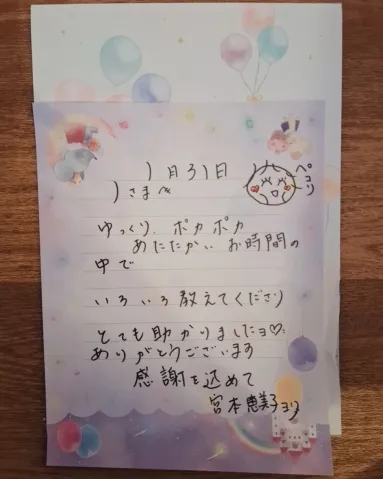 1月31日
ペコリ
さま〜
ゆっくり、ポカポカ
あたたかい お時間の
中で
いろいろ教えてくださり
とても助かりましたヨ♡
ありがとうございます
感謝を込めて
宮本恵美子ヨリ